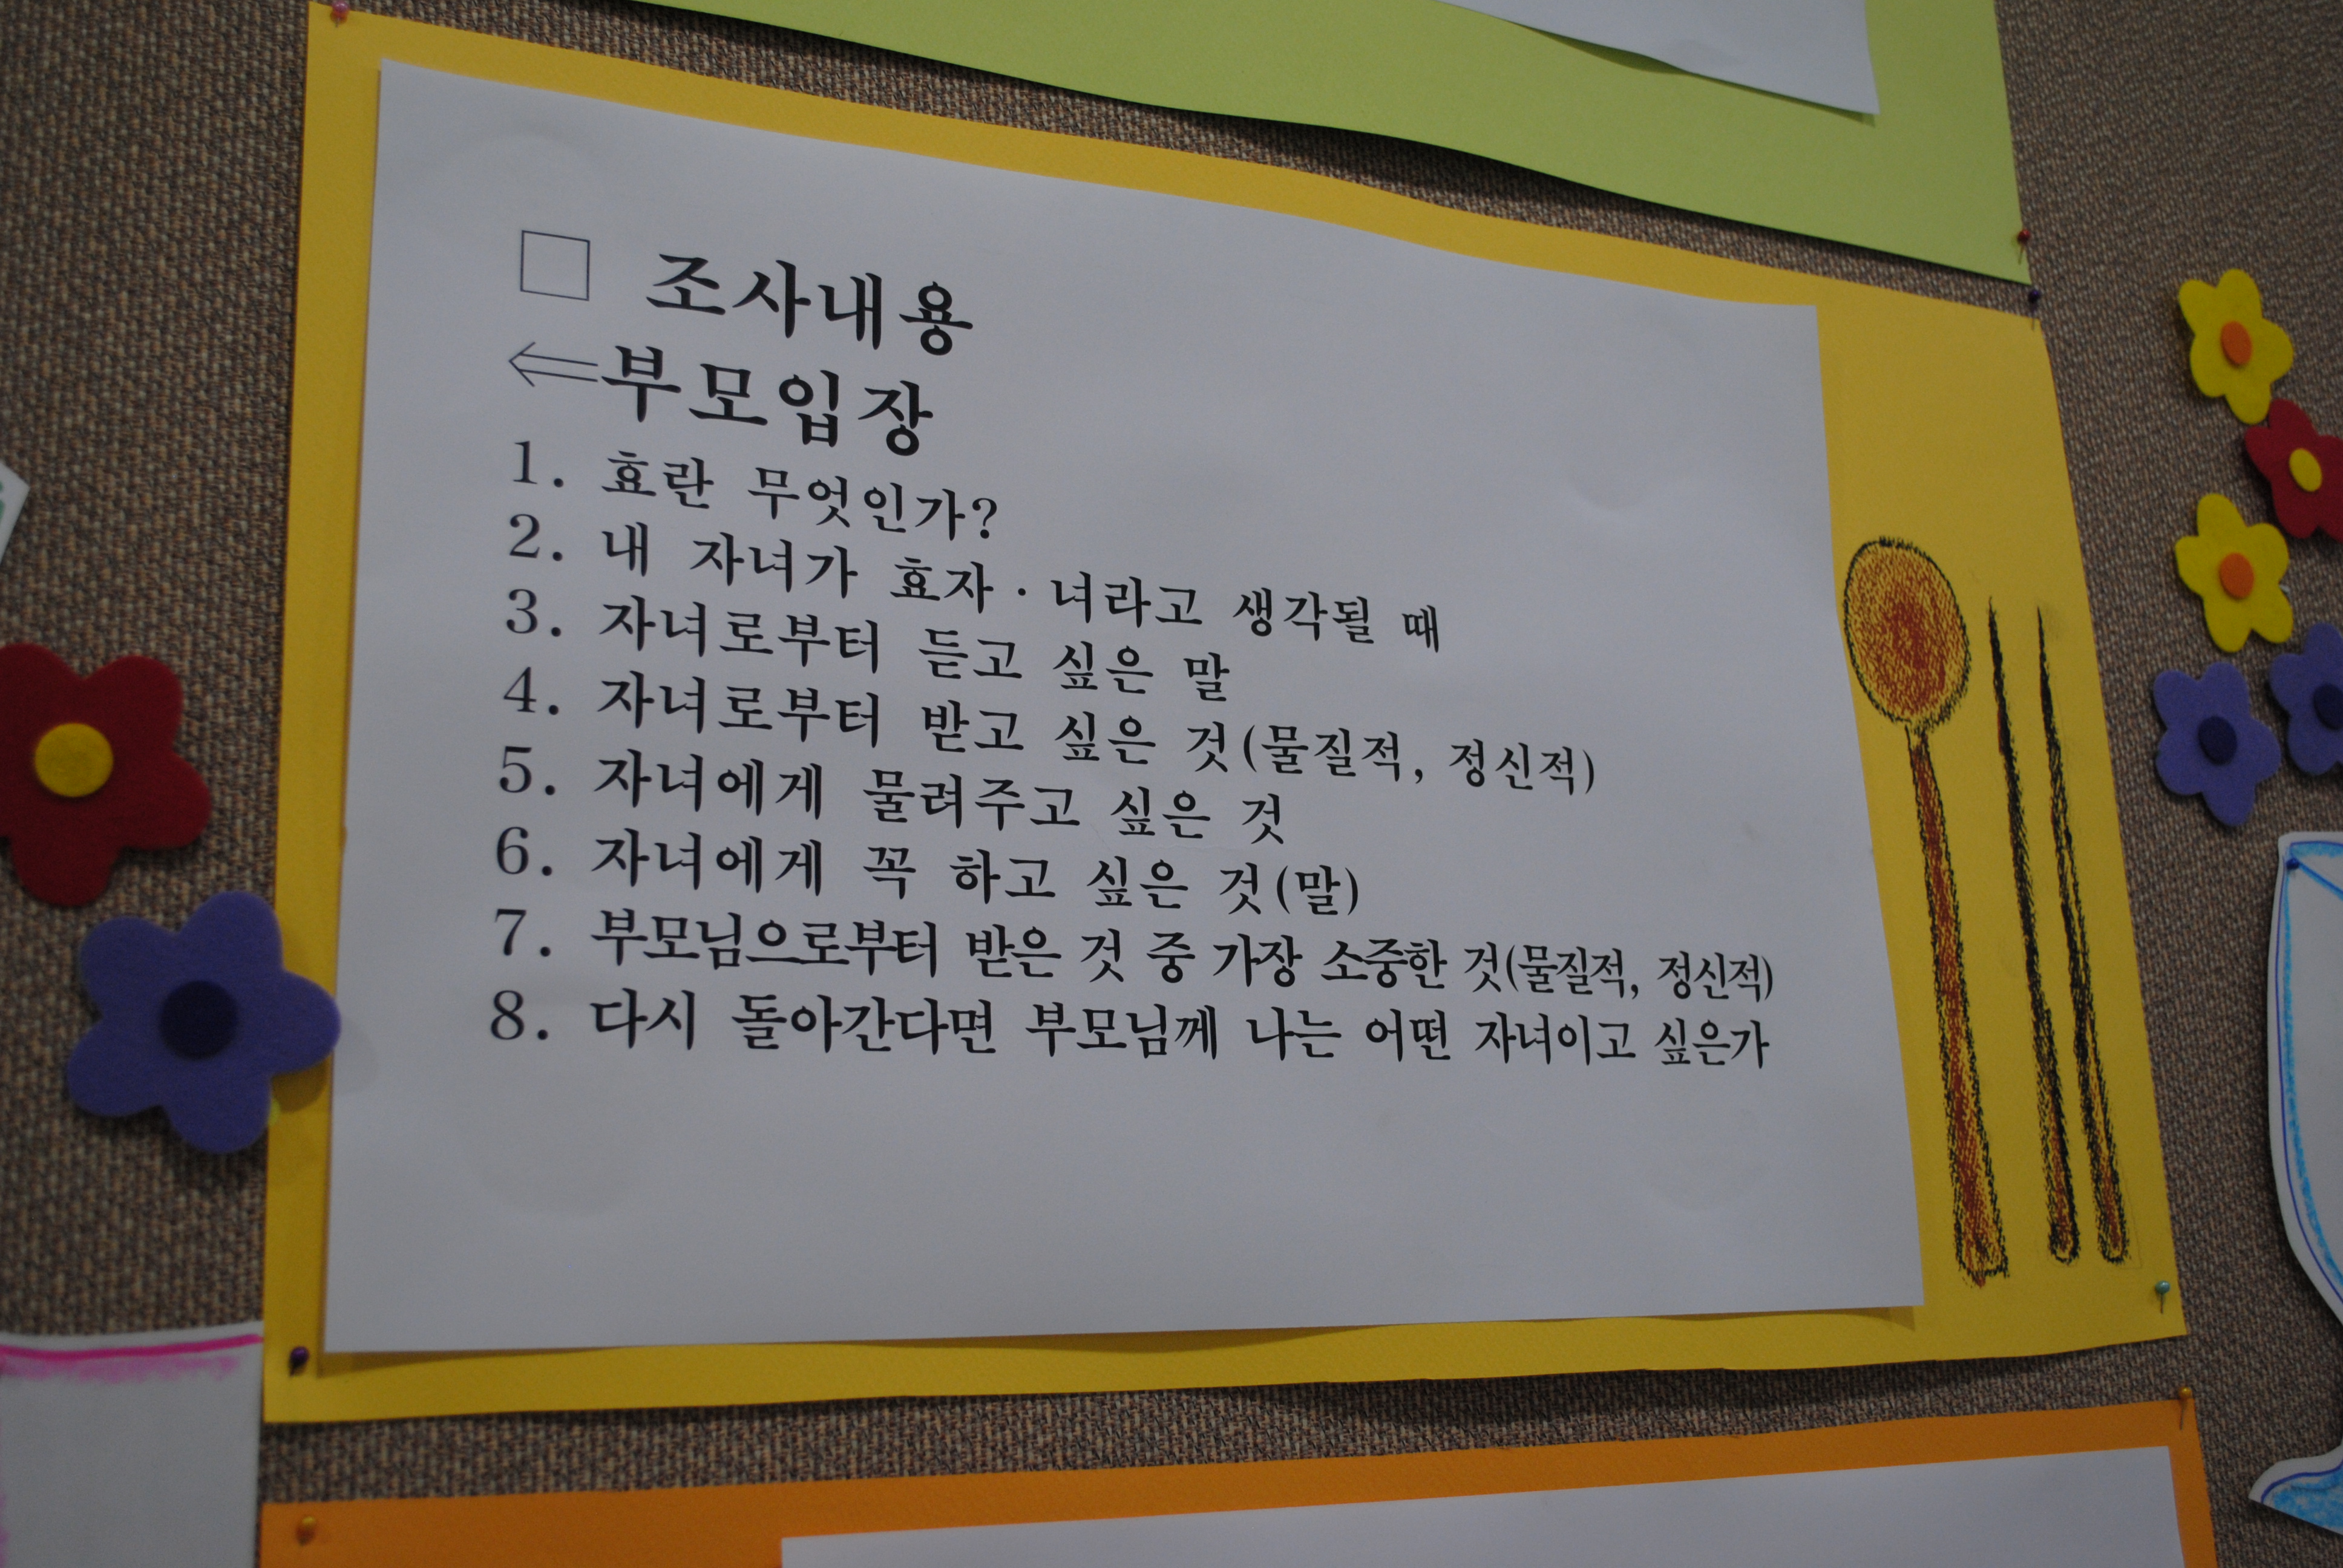 □ 조사내용
⇐부모입장
1. 효란 무엇인가?
2. 내 자녀가 효자·녀라고 생각될 때
3. 자녀로부터 듣고 싶은 말
4. 자녀로부터 받고 싶은 것(물질적, 정신적)
5. 자녀에게 물려주고 싶은 것
6. 자녀에게 꼭 하고 싶은 것(말)
7. 부모님으로부터 받은 것 중 가장 소중한 것(물질적, 정신적)
8. 다시 돌아간다면 부모님께 나는 어떤 자녀이고 싶은가